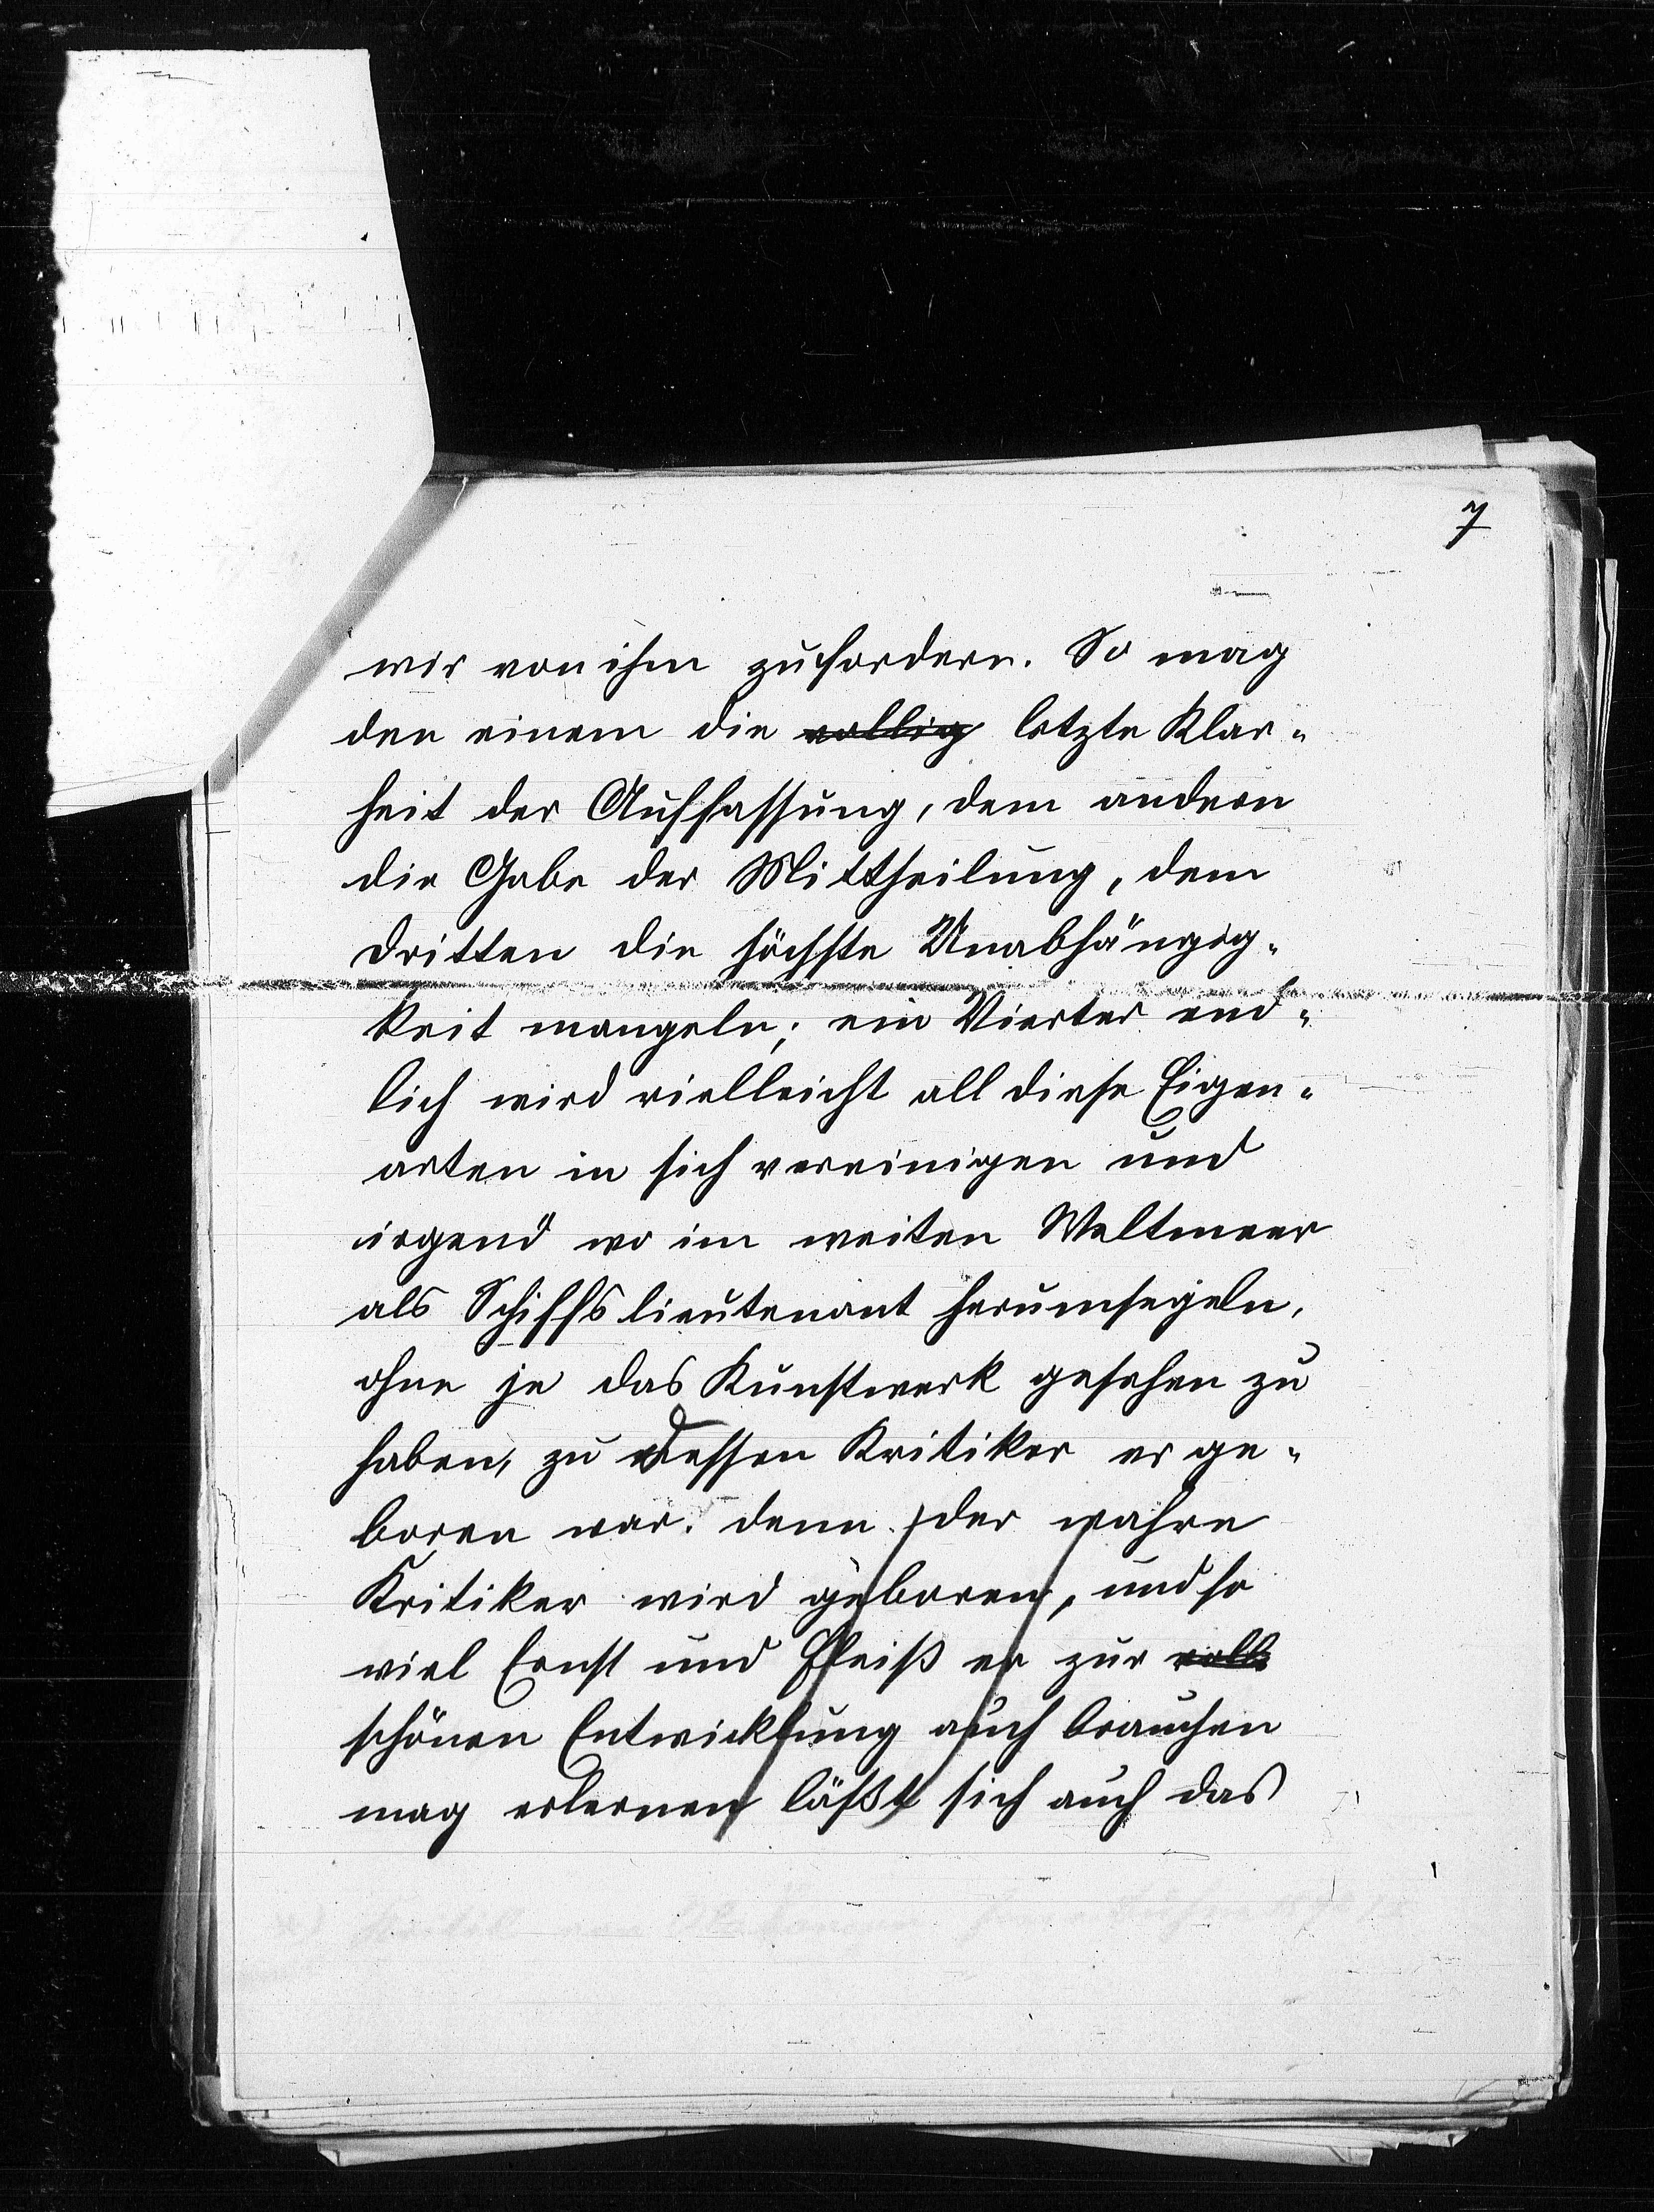 7
wir von ihm zu fordern. So mag
den einem die völlig letzte Klar-
heit der Auffassung, dem andern
die Gabe der Mittheilung, dem
dritten die höchste Unabhängig-
keit mangeln; ein Vierter end-
lich wird vielleicht all diese Eigen-
arten in sich vereinigen und
irgend wo im weiten Weltmeer
als Schiffslieutenant herumsegeln,
ohne je das Kunstwerk gesehen zu
haben, zu dessen Kritiker er ge-
boren war. denn der wahre
Kritiker wird geboren, und so
viel Ernst und Fleiß er zur voll
schönen Entwicklung auch brauchen
mag erlernen läßt sich auch das